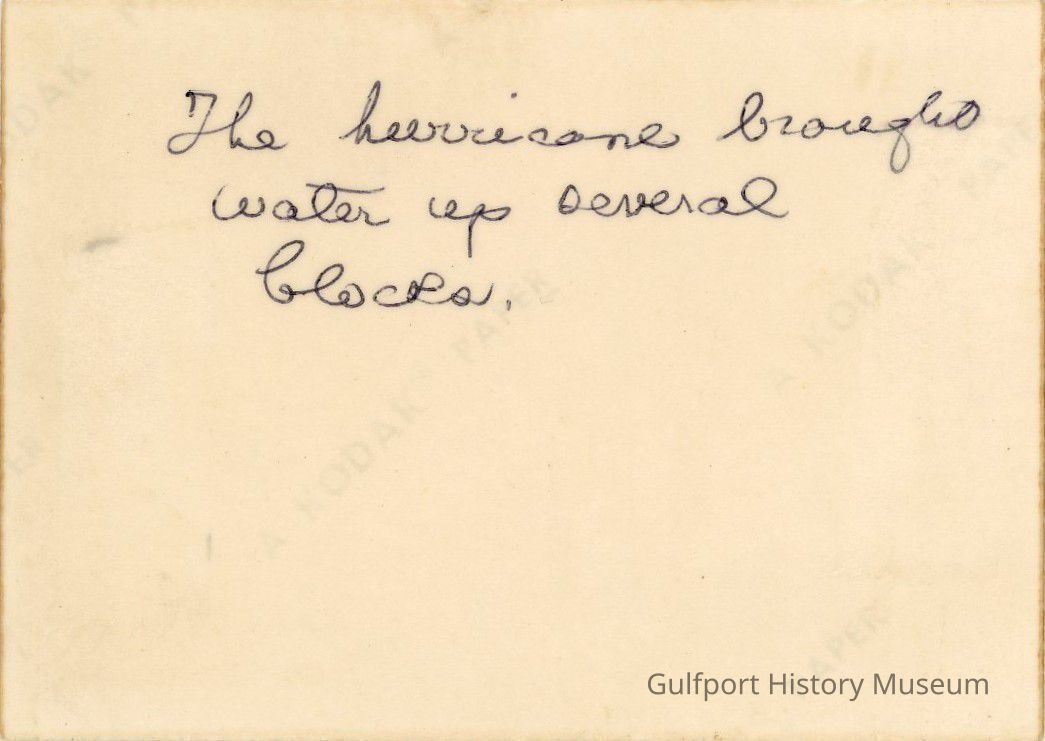 The hurricane brought
water up several
blocks.
KODAK
PAPER
A KODAK
PAPER
A KODAK
PAPER
Gulfport History Museum